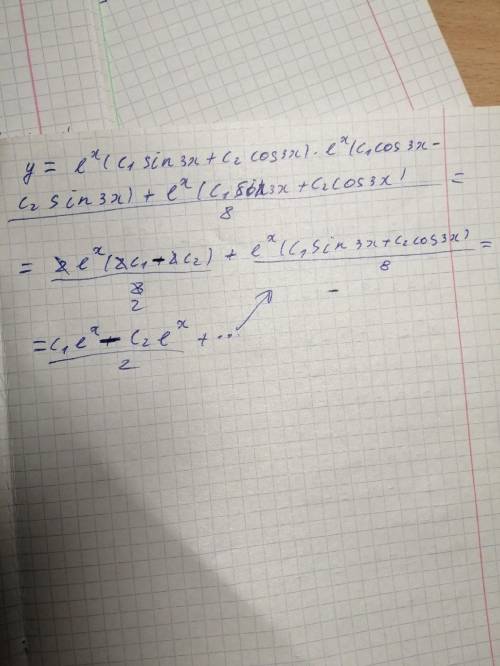 y = e^x (c₁ sin 3x + c₂ cos 3x) · e^x (c₁ cos 3x -
c₂ sin 3x) + e^x (c₁ sin 3x + c₂ cos 3x) =
8
= 2 e^x (2c₁ - 2c₂) + e^x (c₁ sin 3x + c₂ cos 3x) =
8 8
2
= c₁e^x - c₂e^x + ...
2